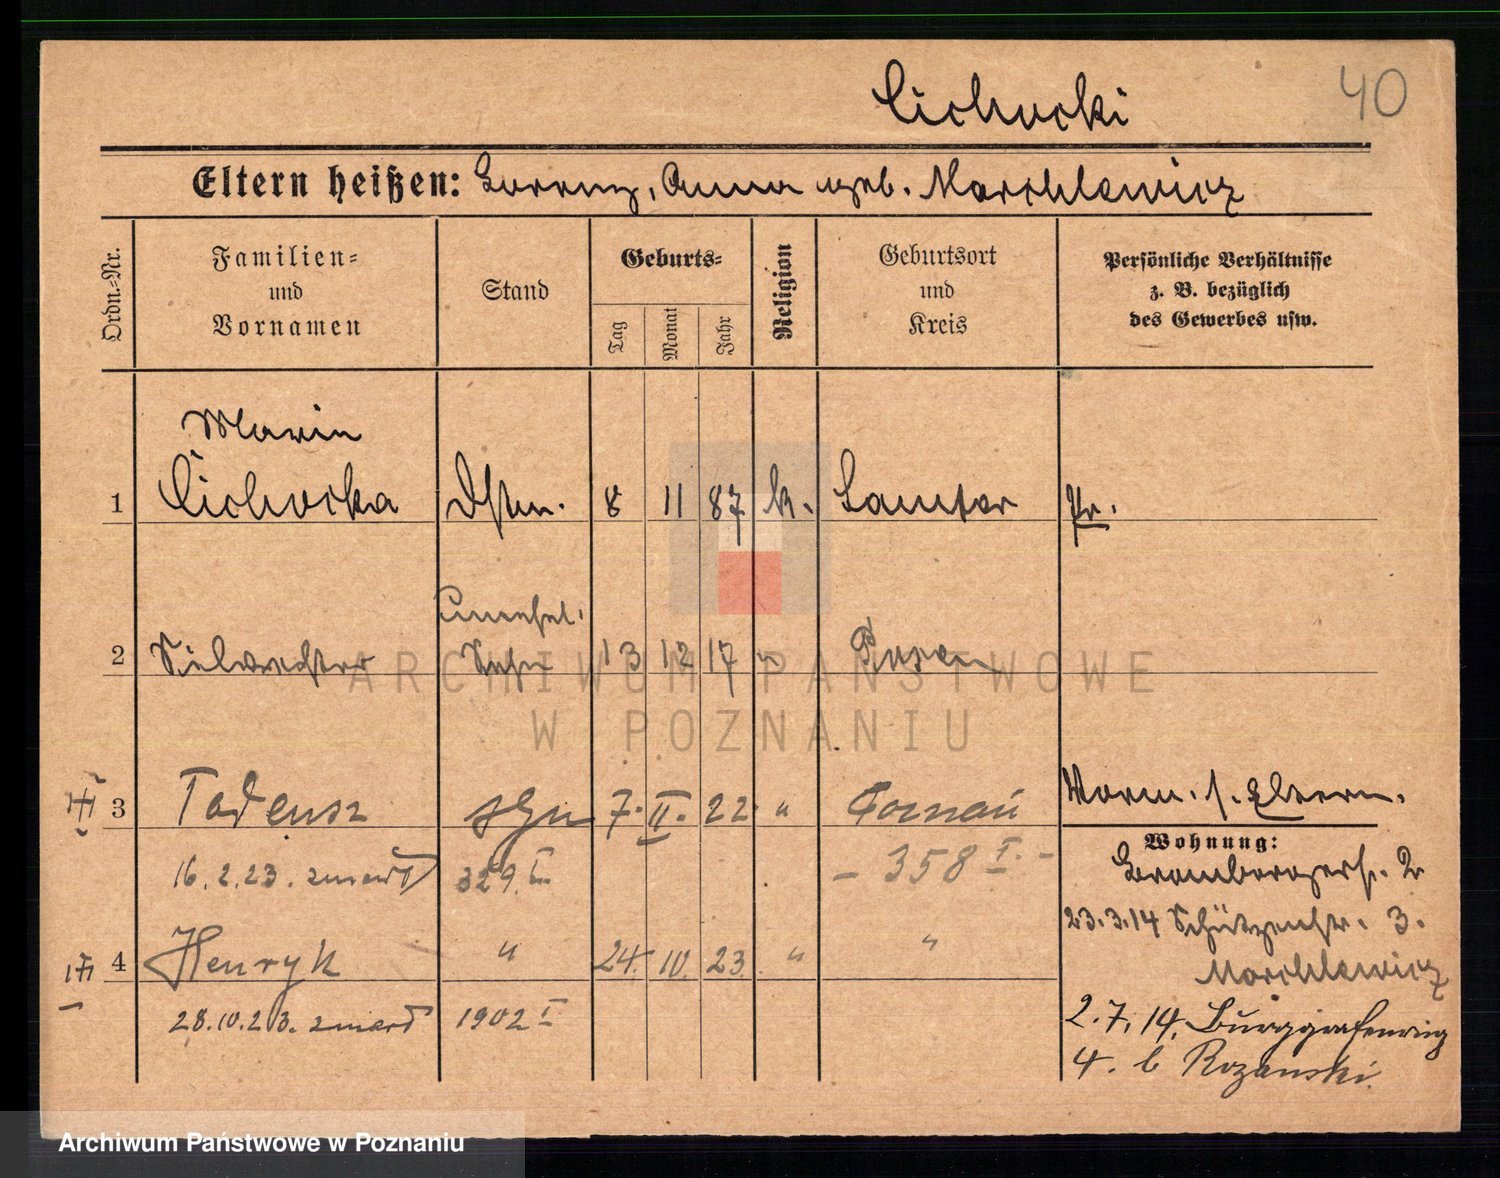 Cichocki
40
Eltern heißen: Lorenz, Anna geb. Marchlewicz
Ordn.=Nr.
Familien= und Vornamen
Stand
Geburts=
Tag
Monat
Jahr
Religion
Geburtsort und Kreis
Persönliche Verhältnisse z. B. bezüglich des Gewerbes usw.
Maria
1 Cichocka 8 11 87 k. Samter Pr.
2 13 12 17 " Posen
3 Tadeusz syn 7. II. 22 " Poznań
Worm. s. Eltern.
16. 2. 23. zmarł 329. I. – 358 I. –
Wohnung:
Brombergerstr. 2
23.3.14 Schützenstr. 3.
4 Henryk " 24. 10. 23 " "
Marchlewicz
28.10.23. zmarł 1902 I
2.7.14. Burggrafenring
4. b Rozanski.
ARCHIWUM PAŃSTWOWE
W POZNANIU
Archiwum Państwowe w Poznaniu